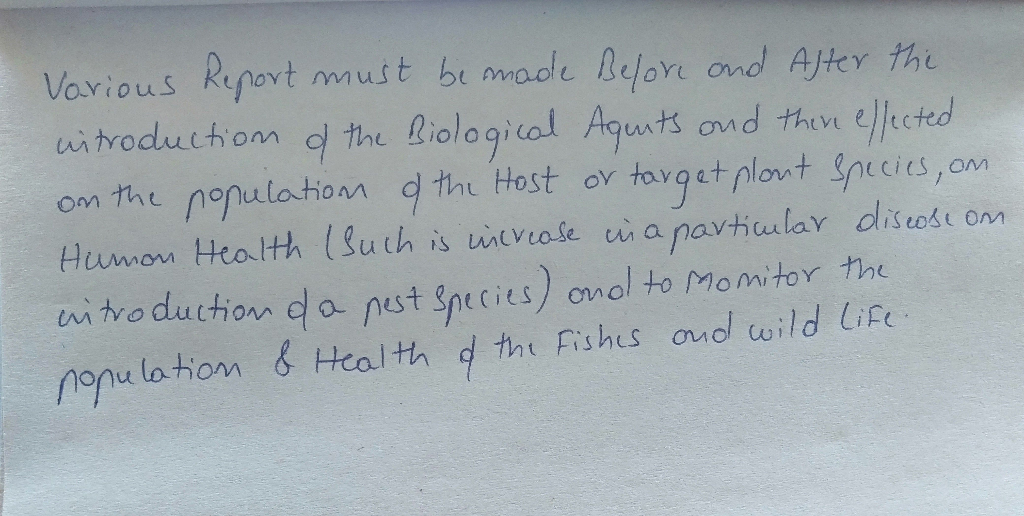 Various Report must be made Before and After the
introduction of the Biological Agents and there effected
on the population of the Host or target plant Species, on
Human Health (Such is increase in a particular disease on
introduction of a pest Species) and to Monitor the
population & Health of the Fishes and wild life.